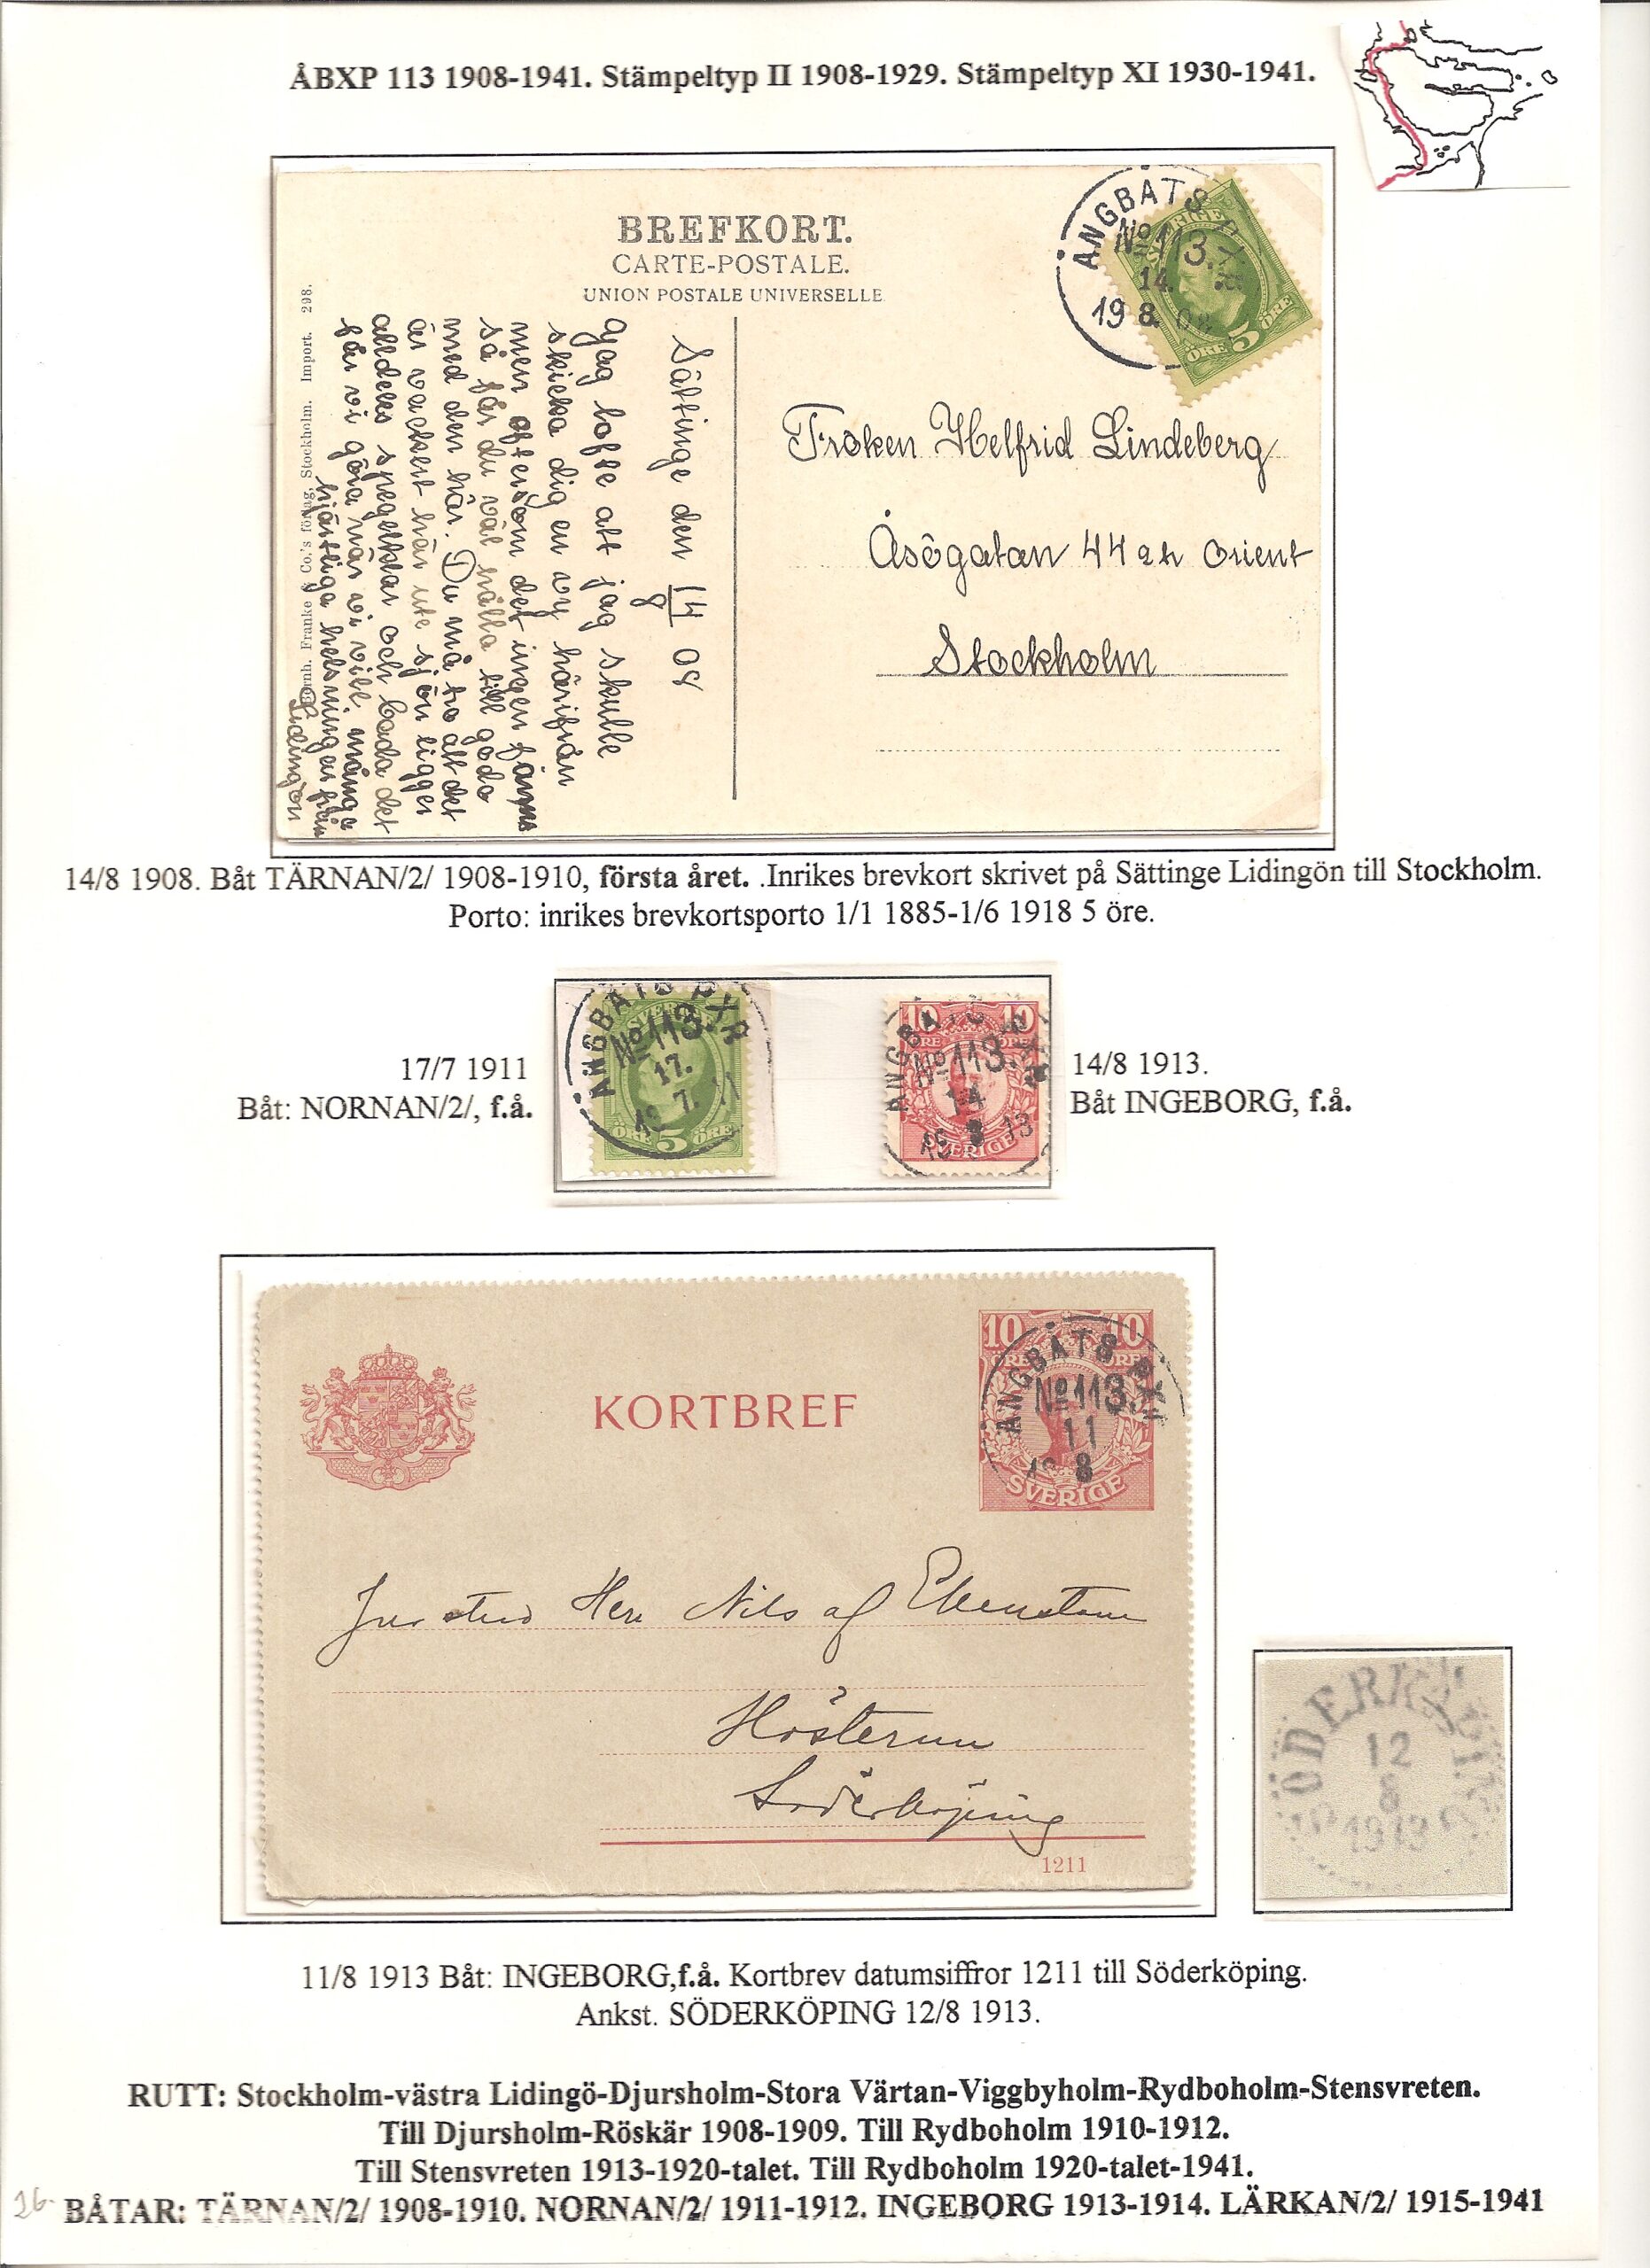 ÅBXP 113 1908-1941. Stämpeltyp II 1908-1929. Stämpeltyp XI 1930-1941.
BREFKORT.
CARTE-POSTALE.
UNION POSTALE UNIVERSELLE
ÅNGBÅTS PXP.
No 113.
14.
19 8. 08
SVERIGE
ÖRE 5 ÖRE
Fröken Helfrid Lindeberg
Åsögatan 44
Stockholm
Sättinge den 14/8 08
Jag lofte att jag skulle
skicka dig en vy härifrån
men eftersom det ingen fanns
så får du väl hålla till godo
med den här. Du må tro att det
är vackert här ute sjön ligger
alldeles spegelklar och bada det
får vi göra när vi vill. många
hjärtliga helsningar från
Lidingön
Bornh. Franke & Co.'s förlag, Stockholm. Import. 298.
14/8 1908. Båt TÄRNAN/2/ 1908-1910, första året. .Inrikes brevkort skrivet på Sättinge Lidingön till Stockholm.
Porto: inrikes brevkortsporto 1/1 1885-1/6 1918 5 öre.
17/7 1911
Båt: NORNAN/2/, f.å.
ÅNGBÅTS PXP
No 113.
17.
19 7. 11
ÖRE 5 ÖRE
10 10
ÅNGBÅTS PXP
No 113.
14
19 8 13
SVERIGE
14/8 1913.
Båt INGEBORG, f.å.
KORTBREF
10 10
ÅNGBÅTS PXP
No 113.
11
8
SVERIGE
Herr Nils af Ekenstam
Hösterum
Söderköping
1211
SÖDERKÖPING
12
8
1913
11/8 1913 Båt: INGEBORG,f.å. Kortbrev datumsiffror 1211 till Söderköping.
Ankst. SÖDERKÖPING 12/8 1913.
RUTT: Stockholm-västra Lidingö-Djursholm-Stora Värtan-Viggbyholm-Rydboholm-Stensvreten.
Till Djursholm-Röskär 1908-1909. Till Rydboholm 1910-1912.
Till Stensvreten 1913-1920-talet. Till Rydboholm 1920-talet-1941.
BÅTAR: TÄRNAN/2/ 1908-1910. NORNAN/2/ 1911-1912. INGEBORG 1913-1914. LÄRKAN/2/ 1915-1941